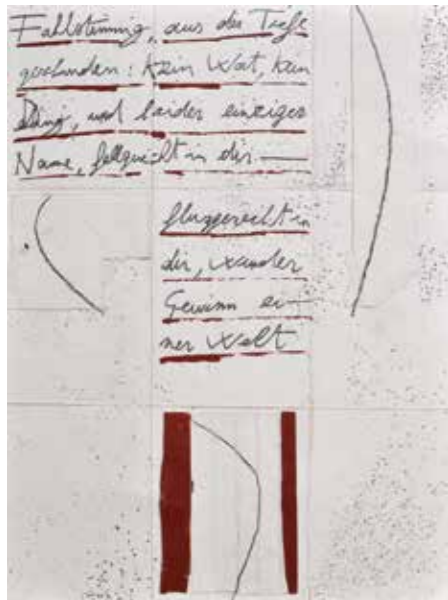 Fahlstimmig, aus der Tiefe
geschunden: kein Wort, kein
Ding, und beider einziger
Name, fallgerecht in dir —
fluggerecht in
dir, wunder
Gewinn ei—
ner Welt